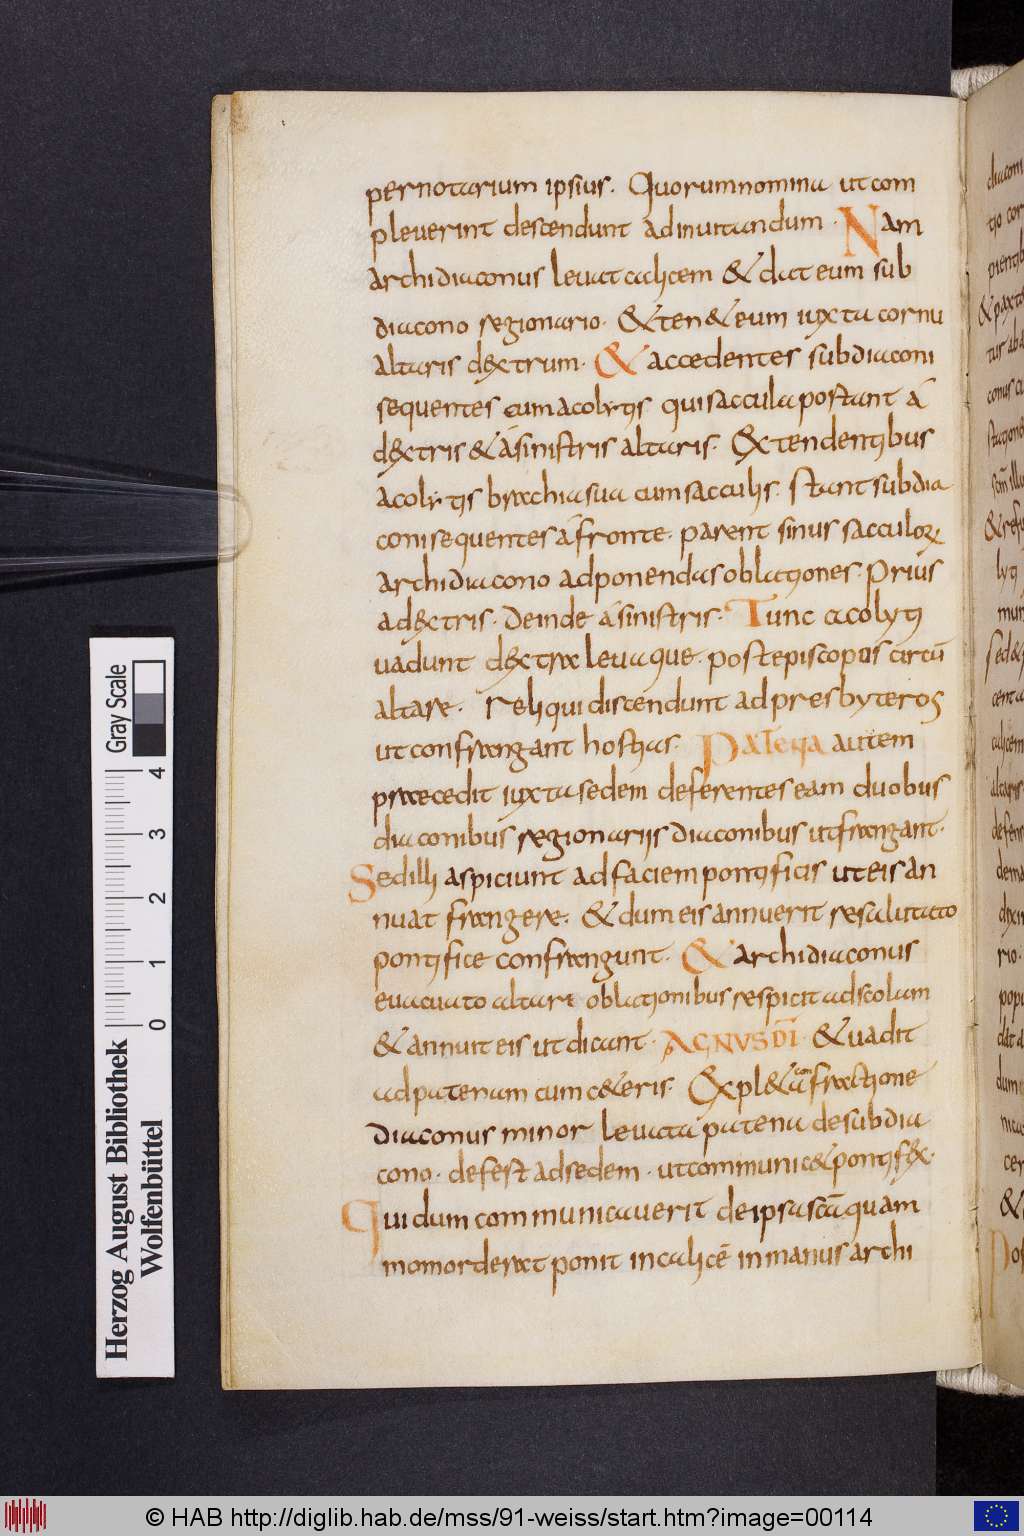 pernotarium ipsius. Quorumnomina ut com
pleverint descendunt adinuitandum. Nam
archidiaconus leuat calicem & dat eum sub
diacono regionario. & ten& eum iuxta cornu
altaris dextrum. & accedentes subdiaconi
sequentes cum acolytis qui saccula portant á
dextris & ásinistris altaris. Extendentibus
acolytis brachia sua cum sacculis. stant subdia
coni sequentes áfronte. parent sinus sacculoꝝ
archidiacono adponendas oblationes. Prius
adextris. Deinde ásinistris. Tunc acolyti
uadunt dextra leuaque. post episcopus circū
altare. reliqui discendunt ad presbyteros
ut confrangant hostias. Patena autem
praecedit iuxta sedem deferentes eam duobus
diaconibus regionariis diaconibus ut frangant.
Sed illi aspiciunt ad faciem pontificis ut eis an
nuat frangere. & dum eis annuerit resalutato
pontifice confrangunt. & archidiaconus
euacuato altare oblationibus respicit ad scolam
& annuit eis ut dicant. AGNUS DĪ. & uadit
ad patenam cum c&eris. Expl&a con fractione
diaconus minor leuata patena de subdia
cono. defert ad sedem. ut communic& pontifex.
Qui dum communicauerit de ipsa scā quam
momorderat ponit in calicē in manus archi
Gray Scale
4 3 2 1 0
Herzog August Bibliothek
Wolfenbüttel
© HAB http://diglib.hab.de/mss/91-weiss/start.htm?image=00114